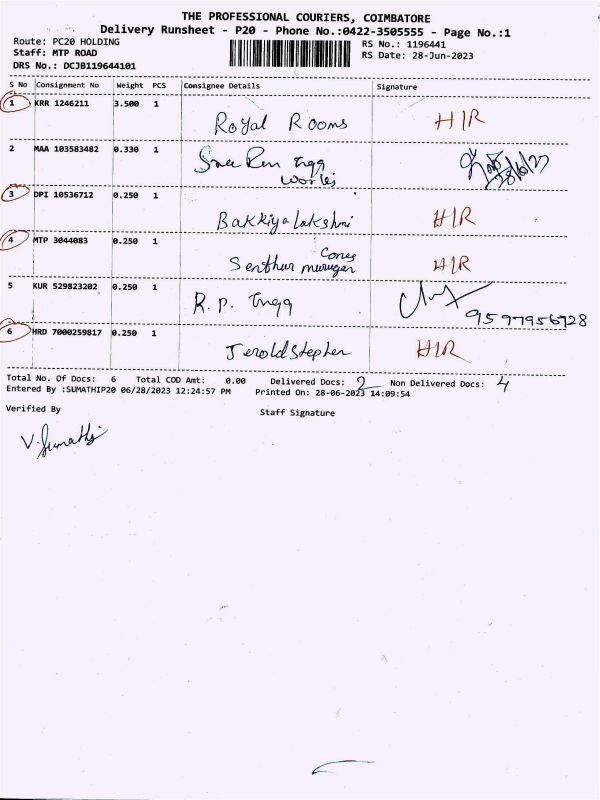 THE PROFESSIONAL COURIERS, COIMBATORE
Delivery Runsheet - P20 - Phone No.:0422-3505555 - Page No.:1
Route: PC20 HOLDING RS No.: 1196441
Staff: MTP ROAD RS Date: 28-Jun-2023
DRS No.: DCJB119644101
S No Consignment No Weight PCS Consignee Details Signature
1 KRR 1246211 3.500 1
Royal Rooms H/R
2 MAA 103583482 0.330 1 Sree Ram Engg
Works
3 DPI 10536712 0.250 1
Bakkiyalakshmi H/R
4 MTP 3044083 0.250 1
Cones
Senthur murugan H/R
5 KUR 529823202 0.250 1 R.P. Engg
9597956728
6 HRD 7000259817 0.250 1
Jerold Stephen H/R
Total No. Of Docs: 6 Total COD Amt: 0.00 Delivered Docs: 2 Non Delivered Docs: 4
Entered By :SUMATHIP20 06/28/2023 12:24:57 PM Printed On: 28-06-2023 14:09:54
Verified By Staff Signature
V. Sumathi